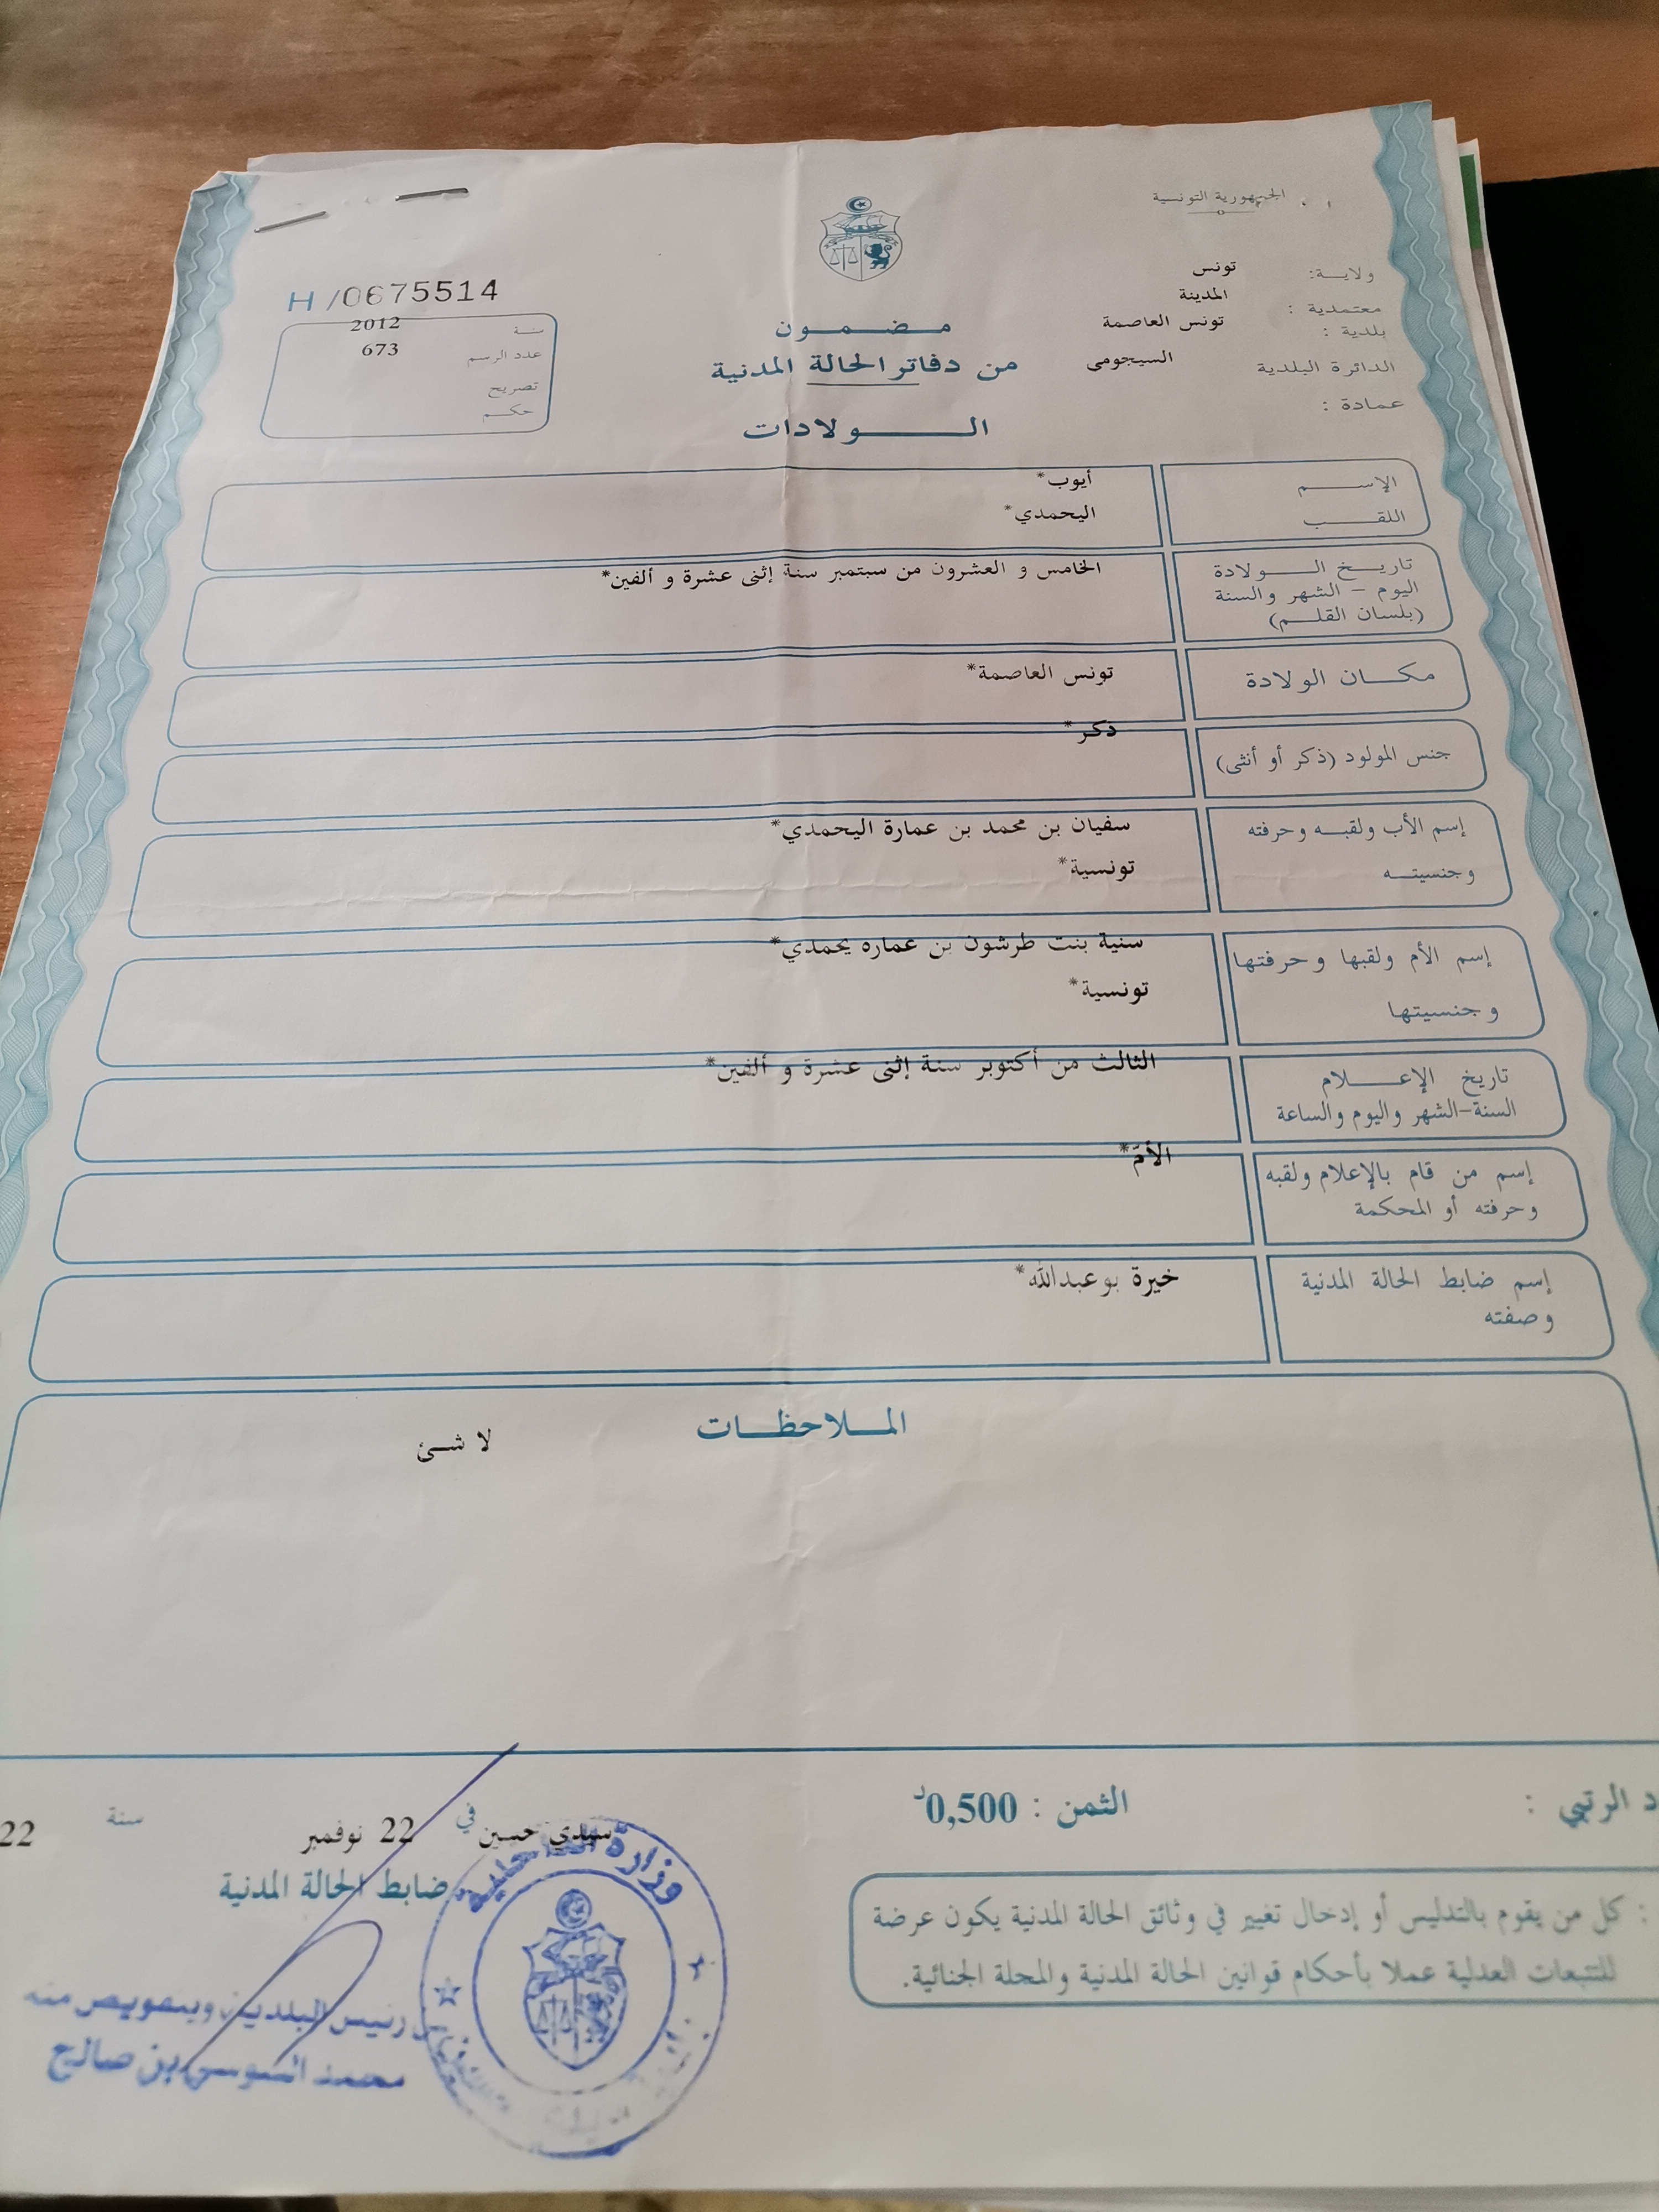 الجمهورية التونسية
ولاية: تونس
معتمدية : المدينة
بلدية : تونس العاصمة
الدائرة البلدية السيجومي
عمادة :
H/0675514
سنة 2012
عدد الرسم 673
تصريح
حكم
مضمون
من دفاتر الحالة المدنية
الولادات
الإسم أيوب*
اللقب اليحمدي*
تاريخ الولادة الخامس و العشرون من سبتمبر سنة إثنى عشرة و ألفين*
اليوم - الشهر والسنة
(بلسان القلم)
مكان الولادة تونس العاصمة*
جنس المولود (ذكر أو أنثى) ذكر*
إسم الأب ولقبه وحرفته سفيان بن محمد بن عمارة اليحمدي*
وجنسيته تونسية*
إسم الأم ولقبها وحرفتها سنية بنت طرشون بن عماره يحمدي*
وجنسيتها تونسية*
تاريخ الإعلام الثالث من أكتوبر سنة إثنى عشرة و ألفين*
السنة-الشهر واليوم والساعة
إسم من قام بالإعلام ولقبه الأمّ*
وحرفته أو المحكمة
إسم ضابط الحالة المدنية خيرة بوعبدالله*
وصفته
الملاحظات
لا شئ
د الرتبي :
الثمن : 0,500د
سيدي حسين في 22 نوفمبر سنة 22
ضابط الحالة المدنية
: كل من يقوم بالتدليس أو إدخال تغيير في وثائق الحالة المدنية يكون عرضة
للتتبعات العدلية عملا بأحكام قوانين الحالة المدنية والمجلة الجنائية.
وزارة الداخلية
رئيس البلدية وبتفويض منه
محمد السوسي بن صالح